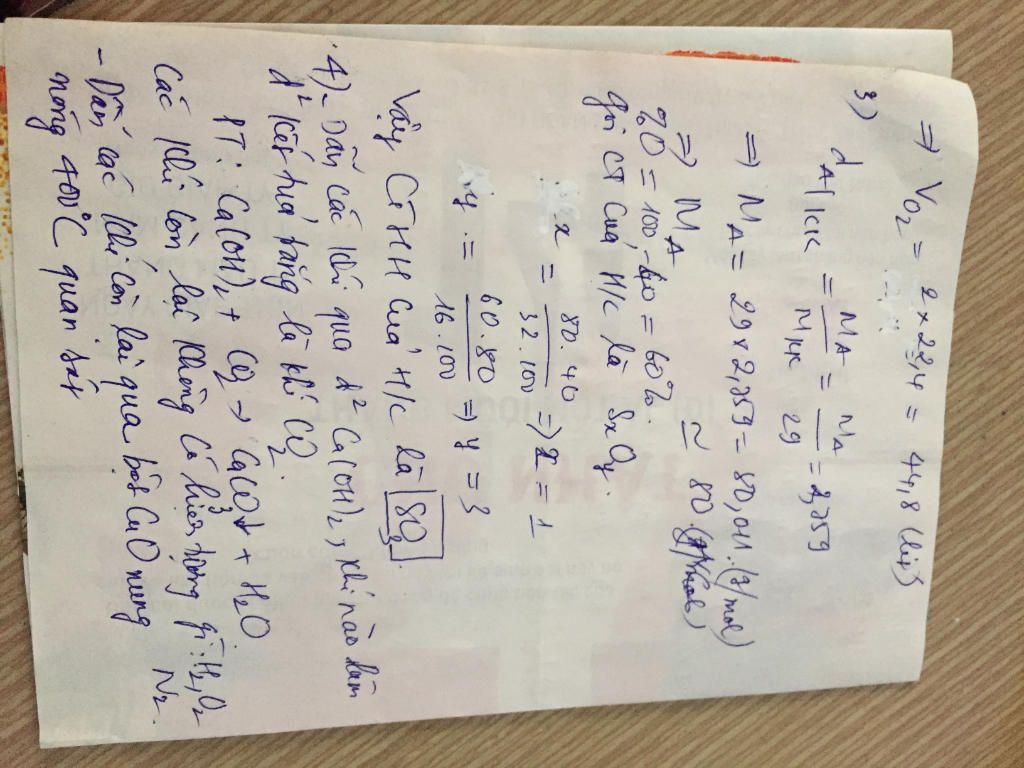 => VO2 = 2 x 22,4 = 44,8 (lít)
3)
dA/kk = MA/Mkk = MA/29 = 2,759
=> MA = 29 x 2,759 = 80,011 (g/mol)
=> MA ≃ 80 (g/mol)
%O = 100 - 40 = 60%.
gọi CT của H/c là SxOy.
x = 80.40/32.100 => x = 1
y = 60.80/16.100 => y = 3
Vậy CTHH của H/c là SO3.
4) - Dẫn các khí qua d² Ca(OH)2, khí nào làm
d² kết tủa trắng là khí CO2.
PT: Ca(OH)2 + CO2 → CaCO3↓ + H2O
Các khí còn lại không có hiện tượng gì: H2, O2
N2.
- Dẫn các khí còn lại qua bột CuO nung
nóng 400°C quan sát